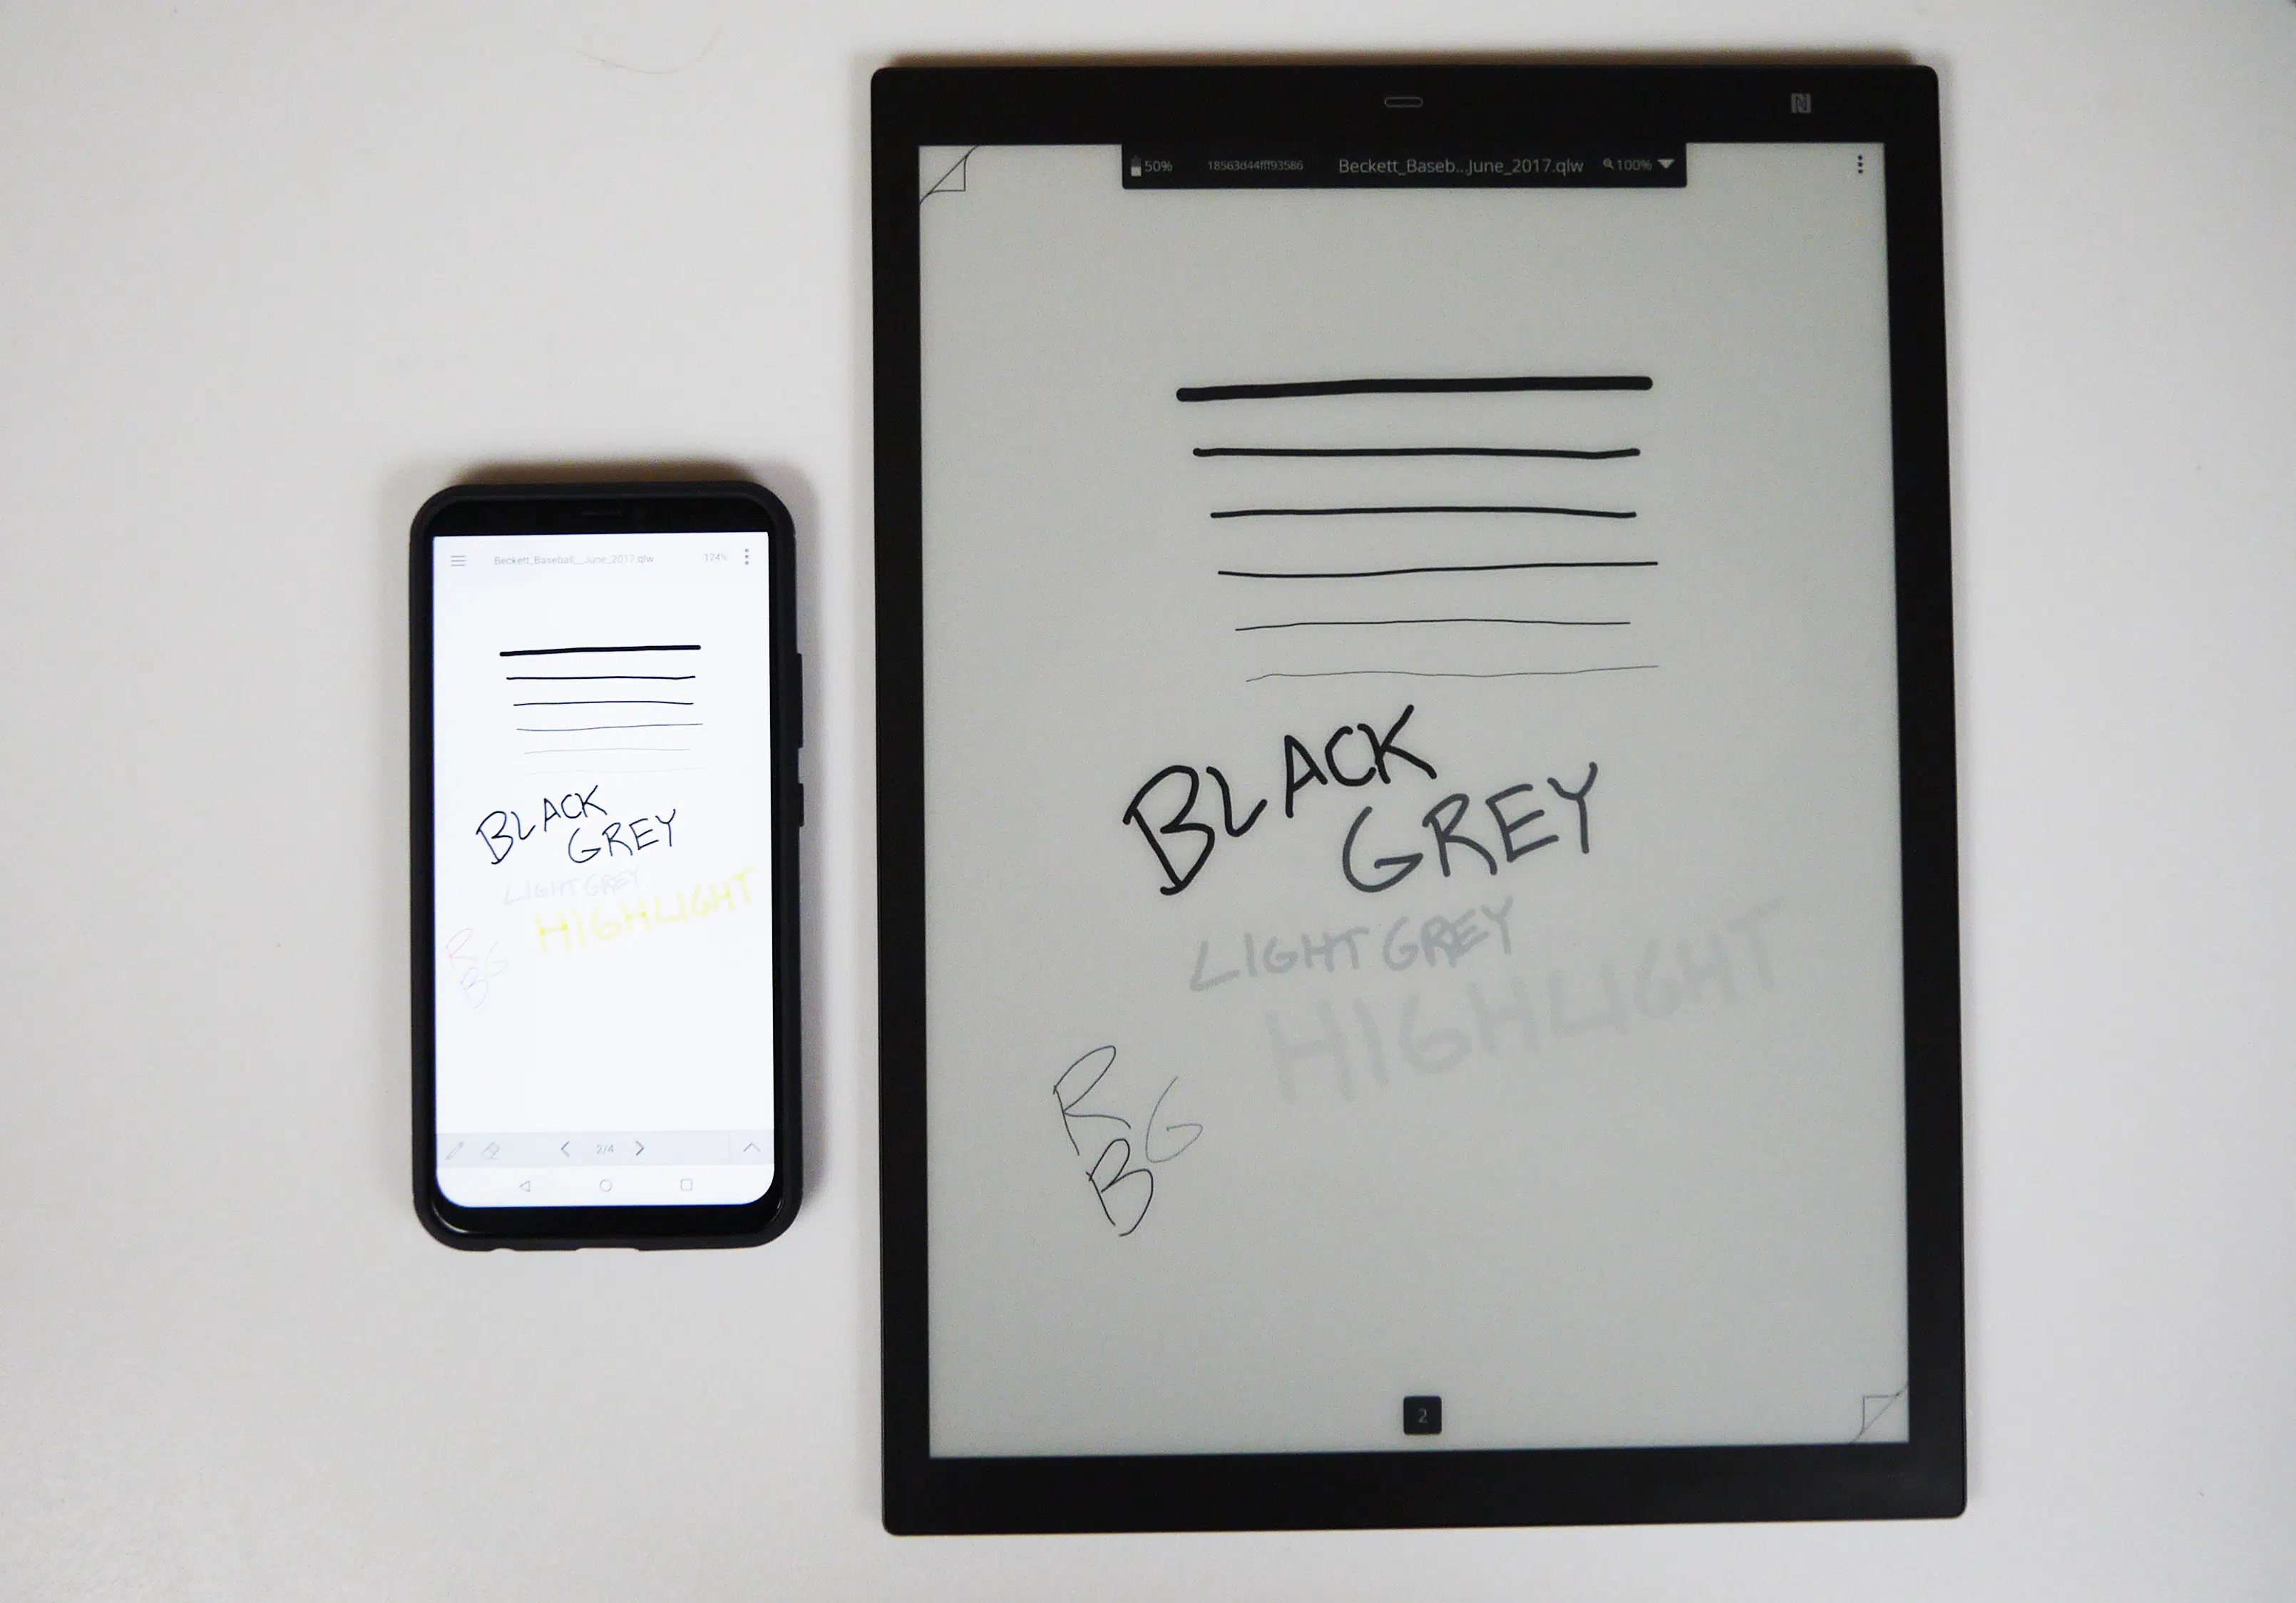 Beckett_Baseball__June_2017.qlw 124%
BLACK
GREY
LIGHT GREY
HIGHLIGHT
R
G
B
2/4
50% 18563d44fff93586 Beckett_Baseb...June_2017.qlw 100%
BLACK
GREY
LIGHT GREY
HIGHLIGHT
R
G
B
2